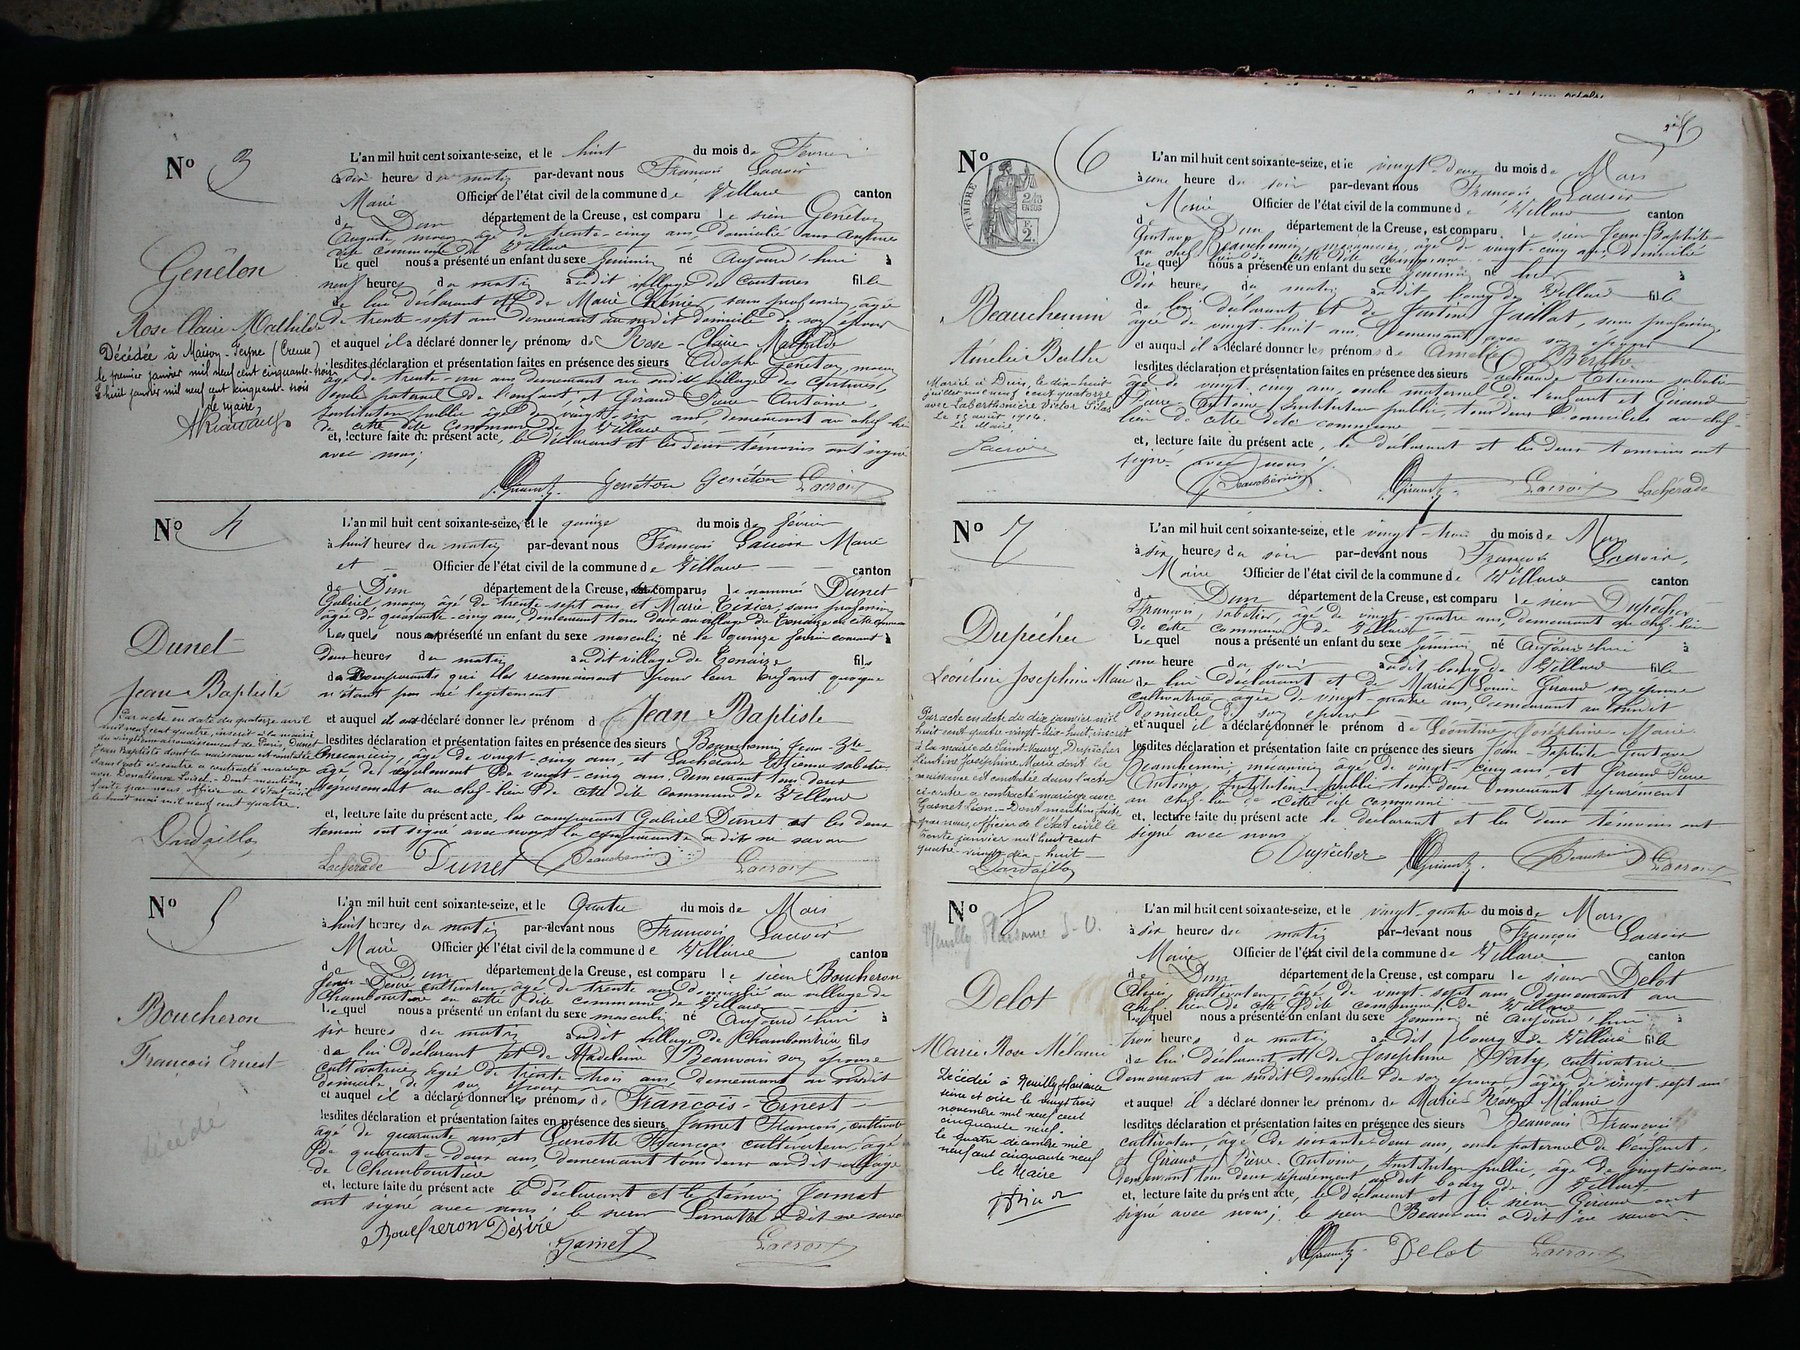 N° 3
L'an mil huit cent soixante-seize, et le huit du mois de Février
à dix heures du matin par-devant nous François Lacroix
Maire Officier de l'état civil de la commune de Villard canton
de Dun département de la Creuse, est comparu le sieur Genéton
Auguste, maçon, âgé de trente-cinq ans, domicilié aux Coutures
dite commune de Villard
Lequel nous a présenté un enfant du sexe féminin né Aujourd'hui à
neuf heures du matin audit village des Coutures fille
de lui déclarant et de Marie Chénier, sans profession, âgée
de trente-sept ans demeurant au susdit domicile de son époux
et auquel il a déclaré donner les prénoms de Rose-Claire-Mathilde
lesdites déclaration et présentation faites en présence des sieurs Adolph Genéton, maçon
âgé de trente-un ans demeurant au susdit village des Coutures,
oncle paternel de l'enfant et Giraud Pierre Antoine
instituteur public âgé de vingt-six ans, demeurant au chef-lieu
de cette dite commune de Villard
et, lecture faite du présent acte, le déclarant et les deux témoins ont signé
avec nous;
Genéton Genéton Lacroix
Genéton
Rose Claire Mathilde
Décédée à Maison-Feyne (Creuse)
le premier janvier mil neuf cent cinquante-trois
Le huit janvier mil neuf cent cinquante-trois
le maire,
N° 4
L'an mil huit cent soixante-seize, et le quinze du mois de février
à huit heures du matin par-devant nous François Lacroix Maire
et Officier de l'état civil de la commune de Villard canton
de Dun département de la Creuse, comparus le nommé Dunet
Gabriel, maçon, âgé de trente-sept ans et Marie Tixier, sans profession
âgée de quarante-cinq ans, demeurant tous deux au village de Tenaize en cette commune
Lesquels nous ont présenté un enfant du sexe masculin né le quinze février courant à
deux heures du matin audit village de Tenaize fils
des comparants qui les reconnaissent pour leur enfant quoique
n'étant pas né légitimement
et auquel ils ont déclaré donner les prénom de Jean Baptiste
lesdites déclaration et présentation faites en présence des sieurs Beauchemin Jean-Bte
mécanicien, âgé de vingt-cinq ans, et Lachérade Etienne sabotier
âgé de également de vingt-cinq ans, demeurant tous deux
séparément au chef-lieu de cette dite commune de Villard
et, lecture faite du présent acte, les comparant Gabriel Dunet et les deux
témoins ont signé avec nous la comparante a dit ne savoir
Lachérade Dunet Beauchemin Lacroix
Dunet
Jean Baptiste
Par acte en date du quatorze avril
mil neuf cent quatre, inscrit à la mairie
du vingtième arrondissement de Paris, Dunet
Jean Baptiste dont la naissance est constatée
dans l'acte ci-contre a contracté mariage
avec Donatienne Loisel. - Dont mention
faite par nous officier de l'état civil
le huit mai mil neuf cent quatre.
Dardaillon
N° 5
L'an mil huit cent soixante-seize, et le Quatre du mois de Mars
à huit heures du matin par-devant nous François Lacroix
Maire Officier de l'état civil de la commune de Villard canton
de Dun département de la Creuse, est comparu le sieur Boucheron
Jean-Désiré cultivateur, âgé de trente ans domicilié au village de
Chamboutière en cette dite commune de Villard
Lequel nous a présenté un enfant du sexe masculin né Aujourd'hui à
six heures du matin audit village de Chamboutière fils
de lui déclarant et de Madeleine Beauvais son épouse
cultivatrice, âgée de trente-trois ans, demeurant au susdit
domicile de son époux
et auquel il a déclaré donner les prénoms de François-Ernest
lesdites déclaration et présentation faites en présence des sieurs Jamet François, cultivateur
âgé de quarante ans et Lunotte François cultivateur, âgé
de quarante-deux ans, demeurant tous deux audit village
de Chamboutière
et, lecture faite du présent acte le déclarant et le témoin Jamet
ont signé avec nous; le sieur Lunotte a dit ne savoir
Boucheron Désiré
Jamet Lacroix
Boucheron
François Ernest
décédé
N° 6
TIMBRE
L'an mil huit cent soixante-seize, et le vingt-deux du mois de Mars
à une heure du soir par-devant nous François Lacroix
Maire Officier de l'état civil de la commune de Villard canton
de Dun département de la Creuse, est comparu le sieur Jean-Baptiste
Gustave Beauchemin, mécanicien, âgé de vingt-cinq ans, domicilié
au chef-lieu de cette dite commune
Lequel nous a présenté un enfant du sexe féminin né hier à
dix heures du matin audit bourg de Villard fille
de lui déclarant et de Justine Jaillot, sans profession
âgée de vingt-huit ans, demeurant avec son époux
et auquel il a déclaré donner les prénoms de Amélie Berthe
lesdites déclaration et présentation faites en présence des sieurs Lachérade Etienne sabotier
âgé de vingt-cinq ans, oncle maternel de l'enfant et Giraud
Pierre-Antoine, Instituteur public, tous deux domiciliés au chef-
lieu de cette dite commune
et, lecture faite du présent acte, le déclarant et les deux témoins ont
signé avec nous.
Beauchemin Lacroix Lachérade
Beauchemin
Amélie Berthe
Mariée à Dun, le dix-huit
juillet mil neuf cent quatorze
avec Laberthonière Victor Silas
Le Maire
Lacroix
N° 7
L'an mil huit cent soixante-seize, et le vingt-trois du mois de Mars
à six heures du soir par-devant nous François Lacroix,
Maire Officier de l'état civil de la commune de Villard canton
de Dun département de la Creuse, est comparu le sieur Dupêcher
François, sabotier, âgé de vingt-quatre ans, demeurant au chef-lieu
de cette commune de Villard
Lequel nous a présenté un enfant du sexe féminin né Aujourd'hui à
une heure du soir audit bourg de Villard fille
de lui déclarant et de Marie Louise Giraud son épouse
cultivatrice âgée de vingt-quatre ans, demeurant au susdit
domicile de son époux
et auquel il a déclaré donner le prénom de Léontine Joséphine Marie
lesdites déclaration et présentation faite en présence des sieurs Jean-Baptiste Gustave
Beauchemin, mécanicien âgé de vingt-cinq ans, et Giraud Pierre
Antoine, Instituteur public, tous deux demeurant séparément
au chef-lieu de cette dite commune
et, lecture faite du présent acte le déclarant et les deux témoins ont
signé avec nous
Dupêcher Beauchemin Lacroix
Dupêcher
Léontine Joséphine Marie
Par acte en date du dix janvier mil
huit cent quatre-vingt-dix-huit, inscrit
à la mairie de Saint-Vaury, Dupêcher
Léontine Joséphine Marie dont la
naissance est constatée dans l'acte
ci-contre a contracté mariage avec
Gasnet Léon. - Dont mention faite
par nous, officier de l'état civil le
trente janvier mil huit cent
quatre-vingt-dix-huit
Dardaillon
N° 8
Neuilly Plaisance S-O.
L'an mil huit cent soixante-seize, et le vingt-quatre du mois de Mars
à six heures du matin par-devant nous François Lacroix
Maire Officier de l'état civil de la commune de Villard canton
de Dun département de la Creuse, est comparu le sieur Delot
cultivateur, âgé de vingt-sept ans demeurant au
chef-lieu de cette dite commune de Villard
Lequel nous a présenté un enfant du sexe féminin né Aujourd'hui à
trois heures du matin audit bourg de Villard fille
de lui déclarant et de Joséphine Paty, cultivatrice
demeurant au susdit domicile de son époux, âgée de vingt-sept ans
et auquel il a déclaré donner les prénoms de Marie-Rose-Mélanie
lesdites déclaration et présentation faites en présence des sieurs Beauvais François
cultivateur, âgé de soixante-deux ans, oncle paternel de l'enfant,
et Giraud Pierre-Antoine, Instituteur public, âgé de vingt-six ans,
demeurant tous deux séparément audit bourg de Villard
et, lecture faite du présent acte, le déclarant et le sieur Giraud ont
signé avec nous; le sieur Beauvais a dit ne savoir
Delot Lacroix
Delot
Marie Rose Mélanie
Décédée à Neuilly plaisance
seine et oise le vingt trois
novembre mil neuf cent
cinquante neuf.
le quatre décembre mil
neuf cent cinquante neuf
le Maire